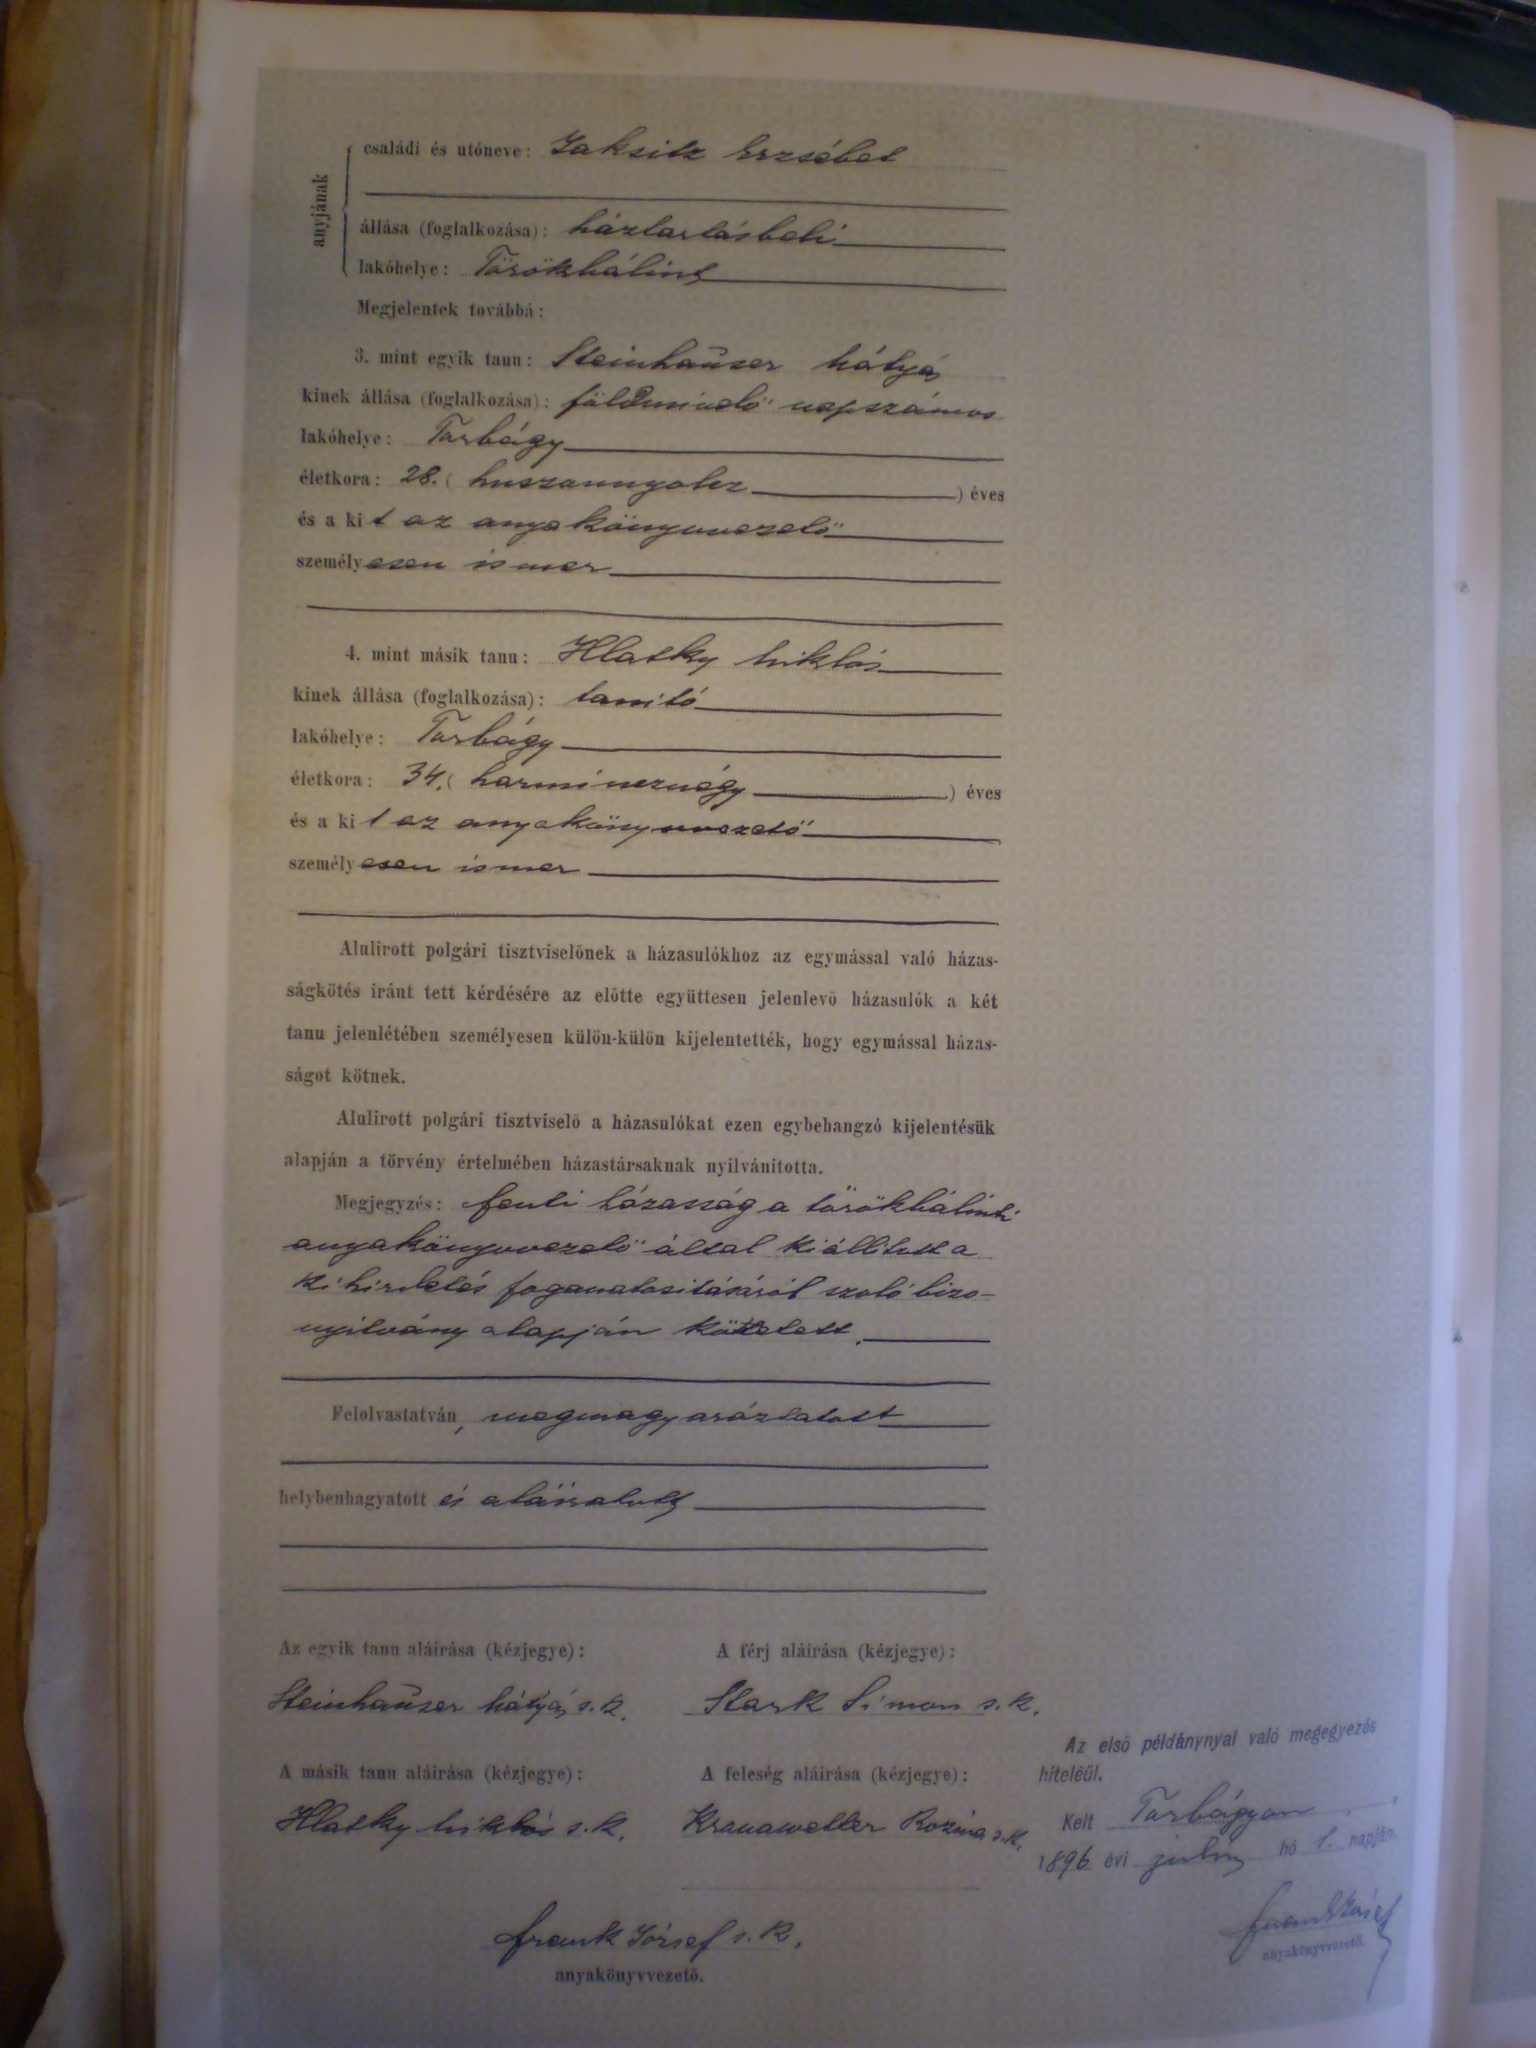 anyjának
családi és utóneve: Jaksitz Erzsébet
állása (foglalkozása): háztartásbeli
lakóhelye: Törökbálint
Megjelentek továbbá:
3. mint egyik tanu: Steinhauser Mátyás
kinek állása (foglalkozása): földmivelő napszámos
lakóhelye: Torbágy
életkora: 28. (huszonnyolcz) éves
és a kit az anyakönyvvezető
személyesen ismer
4. mint másik tanu: Hlatky Miklós
kinek állása (foglalkozása): tanitó
lakóhelye: Torbágy
életkora: 34. (harmincznégy) éves
és a kit az anyakönyvvezető
személyesen ismer
Alulirott polgári tisztviselőnek a házasulókhoz az egymással való házas-
ságkötés iránt tett kérdésére az előtte együttesen jelenlevő házasulók a két
tanu jelenlétében személyesen külön-külön kijelentették, hogy egymással házas-
ságot kötnek.
Alulirott polgári tisztviselő a házasulókat ezen egybehangzó kijelentésük
alapján a törvény értelmében házastársaknak nyilvánitotta.
Megjegyzés: fenti házasság a törökbálinti
anyakönyvvezető által kiállitott a
kihirdetés foganatositásáról szoló bizo-
nyitvány alapján köttetett.
Felolvastatván, megmagyaráztatott
helybenhagyatott és aláiratott
Az egyik tanu aláirása (kézjegye): A férj aláirása (kézjegye):
Steinhauser Mátyás s. k. Stark Simon s. k.
A másik tanu aláirása (kézjegye): A feleség aláirása (kézjegye):
Hlatky Miklós s. k. Kranaweller Rozina s. k.
Frank József s. k.
anyakönyvvezető.
Az első példánynyal való megegyezés
hiteléül.
Kelt Torbágyon
1896 évi julius hó 1. napján.
Frank József
anyakönyvvezető.